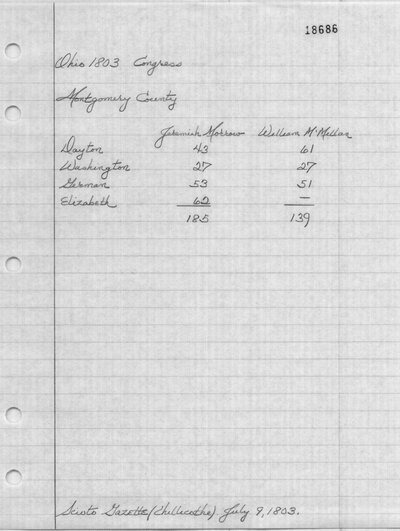 18686
Ohio 1803 Congress
Montgomery County
Jeremiah Morrow William McMillan
Dayton 43 61
Washington 27 27
German 53 51
Elizabeth 62 —
185 139
Scioto Gazette (Chillicothe) July 9, 1803.